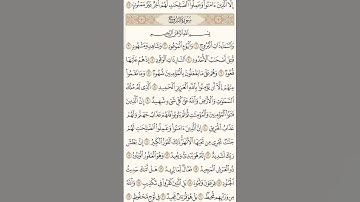 إِلَّا ٱلَّذِينَ ءَامَنُوا۟ وَعَمِلُوا۟ ٱلصَّـٰلِحَـٰتِ لَهُمْ أَجْرٌ غَيْرُ مَمْنُونٍۭ ٢٥
سُورَةُ البُرُوجِ
بِسْمِ ٱللَّهِ ٱلرَّحْمَـٰنِ ٱلرَّحِيمِ
وَٱلسَّمَآءِ ذَاتِ ٱلْبُرُوجِ ١ وَٱلْيَوْمِ ٱلْمَوْعُودِ ٢ وَشَاهِدٍ وَمَشْهُودٍ ٣
قُتِلَ أَصْحَـٰبُ ٱلْأُخْدُودِ ٤ ٱلنَّارِ ذَاتِ ٱلْوَقُودِ ٥ إِذْ هُمْ عَلَيْهَا
قُعُودٌ ٦ وَهُمْ عَلَىٰ مَا يَفْعَلُونَ بِٱلْمُؤْمِنِينَ شُهُودٌ ٧ وَمَا نَقَمُوا۟
مِنْهُمْ إِلَّآ أَن يُؤْمِنُوا۟ بِٱللَّهِ ٱلْعَزِيزِ ٱلْحَمِيدِ ٨ ٱلَّذِى لَهُۥ مُلْكُ
ٱلسَّمَـٰوَٰتِ وَٱلْأَرْضِ وَٱللَّهُ عَلَىٰ كُلِّ شَىْءٍ شَهِيدٌ ٩ إِنَّ ٱلَّذِينَ
فَتَنُوا۟ ٱلْمُؤْمِنِينَ وَٱلْمُؤْمِنَـٰتِ ثُمَّ لَمْ يَتُوبُوا۟ فَلَهُمْ عَذَابُ جَهَنَّمَ وَلَهُمْ
عَذَابُ ٱلْحَرِيقِ ١٠ إِنَّ ٱلَّذِينَ ءَامَنُوا۟ وَعَمِلُوا۟ ٱلصَّـٰلِحَـٰتِ لَهُمْ
جَنَّـٰتٌ تَجْرِى مِن تَحْتِهَا ٱلْأَنْهَـٰرُ ذَٰلِكَ ٱلْفَوْزُ ٱلْكَبِيرُ ١١ إِنَّ بَطْشَ
رَبِّكَ لَشَدِيدٌ ١٢ إِنَّهُۥ هُوَ يُبْدِئُ وَيُعِيدُ ١٣ وَهُوَ ٱلْغَفُورُ ٱلْوَدُودُ ١٤
ذُو ٱلْعَرْشِ ٱلْمَجِيدُ ١٥ فَعَّالٌ لِّمَا يُرِيدُ ١٦ هَلْ أَتَىٰكَ حَدِيثُ
ٱلْجُنُودِ ١٧ فِرْعَوْنَ وَثَمُودَ ١٨ بَلِ ٱلَّذِينَ كَفَرُوا۟ فِى تَكْذِيبٍ ١٩
مِن وَرَآئِهِم مُّحِيطٌۢ ٢٠ فِى لَوْحٍ مَّحْفُوظٍۭ ٢٢